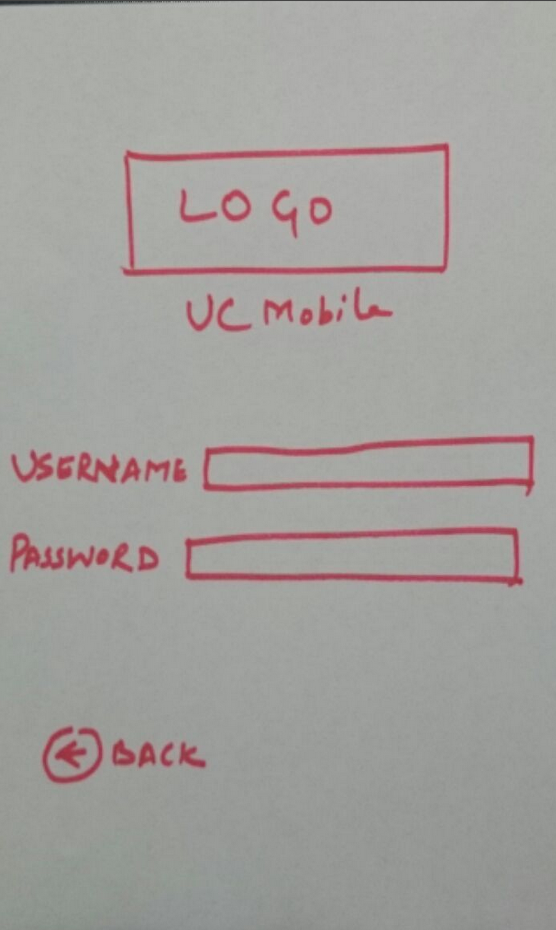 LOGO
UC Mobile
USERNAME
PASSWORD
BACK